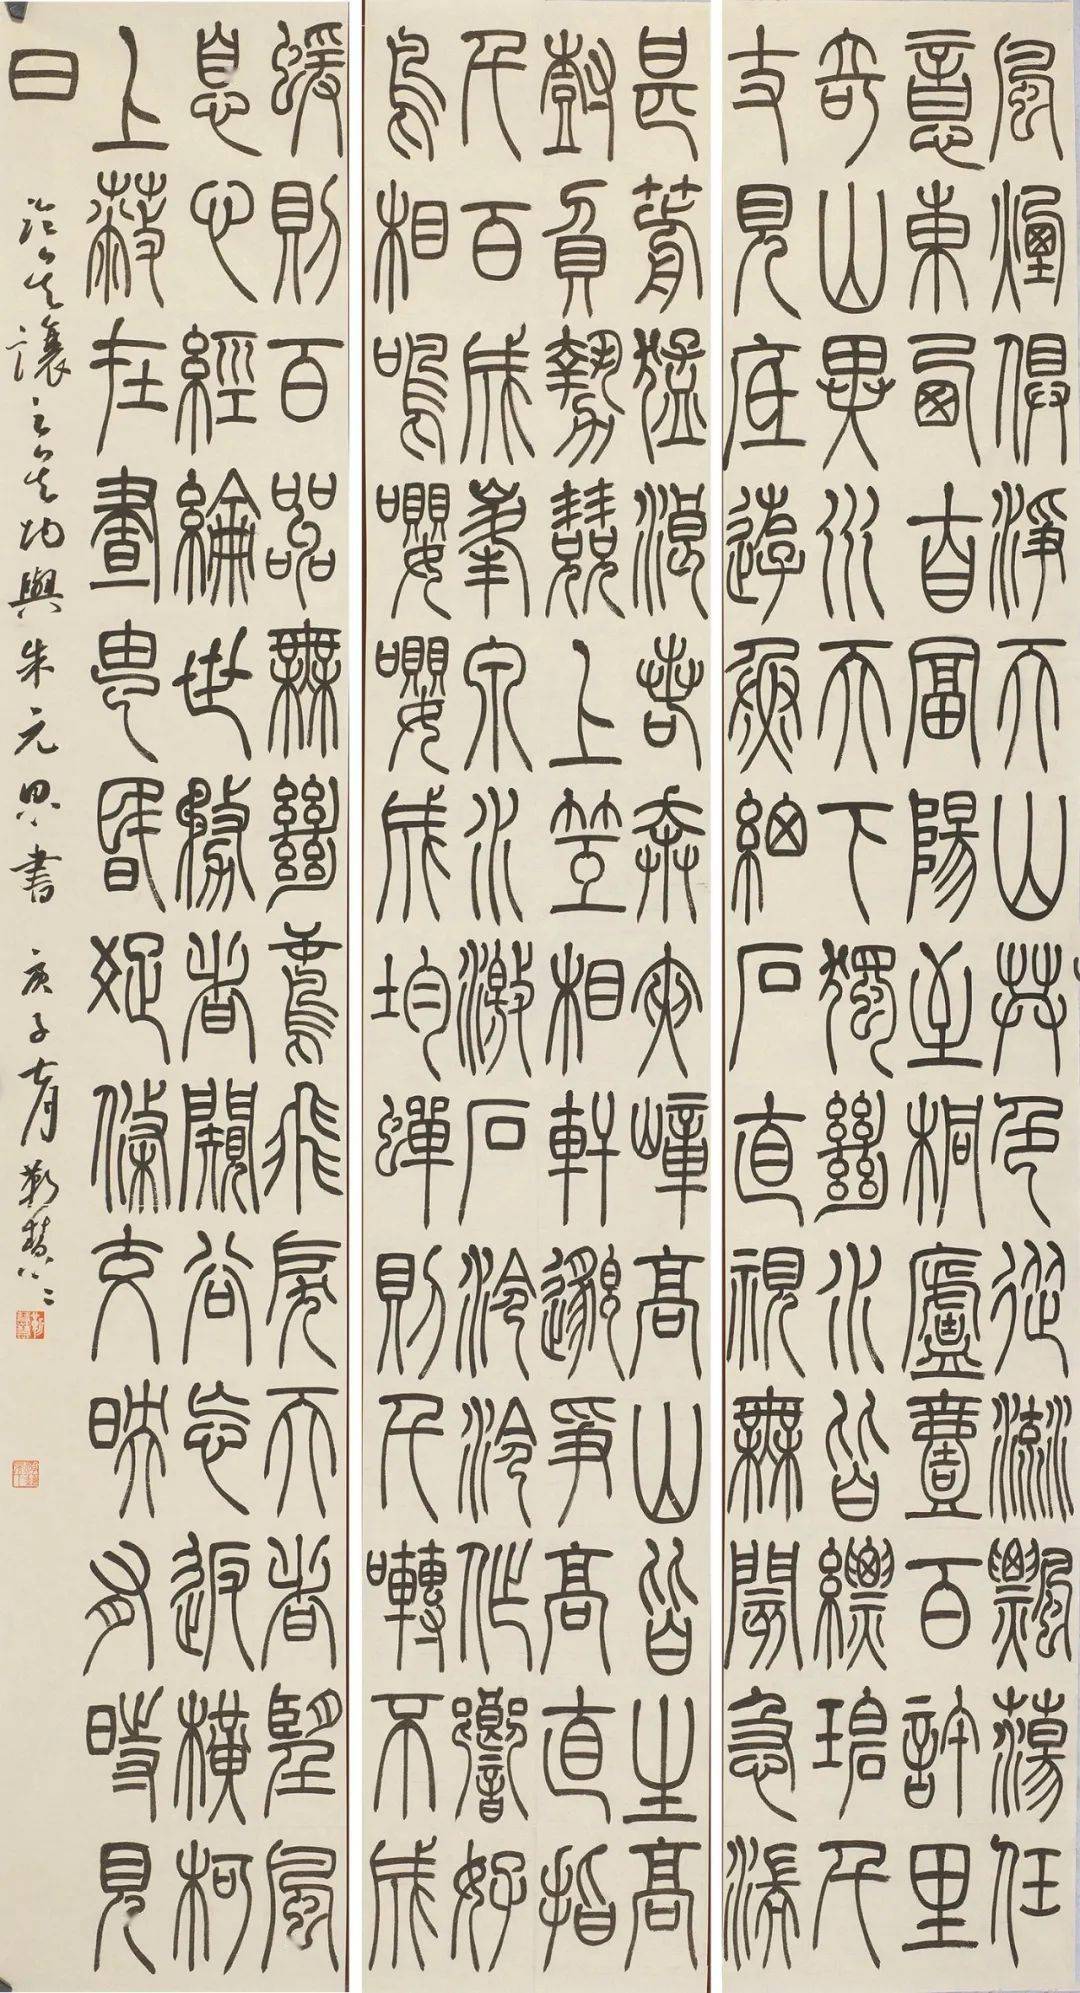 風煙俱淨天山共色從流飄蕩任
意東西自富陽至桐廬壹百許里
奇山異水天下獨絕水皆縹碧千
丈見底游魚細石直視無礙急湍
甚箭猛浪若奔夾嶂高山皆生高
樹負勢競上互相軒邈爭高直指
千百成峯泉水激石泠泠作響好
鳥相鳴嚶嚶成均蟬則千囀不成
蝯則百嘂無絕鳶飛戾天者望風
息心經綸世務者闚谷忘返橫柯
上蔽在晝昏疏條交映有時見
日
臨吳讓之吳均與朱元思書 庚子七月 靳慧